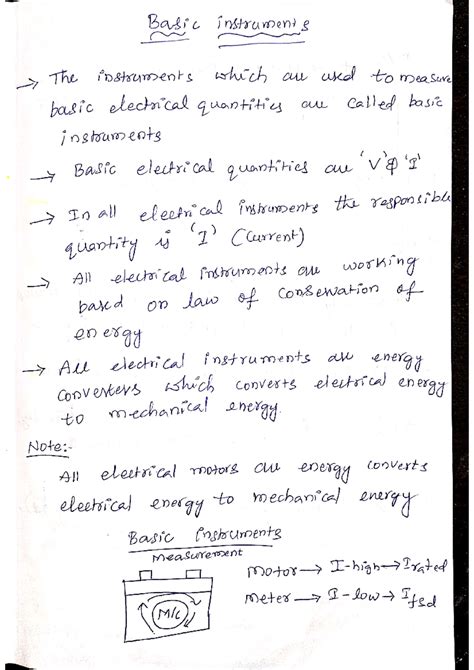 Basic instruments
→ The instruments which are used to measure
basic electrical quantities are called basic
instruments
→ Basic electrical quantities are 'V' & 'I'
→ In all electrical instruments the responsible
quantity is 'I' (Current)
→ All electrical instruments are working
based on law of conservation of
energy
→ All electrical instruments are energy
converters which converts electrical energy
to mechanical energy.
Note:-
All electrical motors are energy converts
electrical energy to mechanical energy
Basic instruments
measurement
Motor → I-high → I rated
meter → I-low → I fsd
M/C